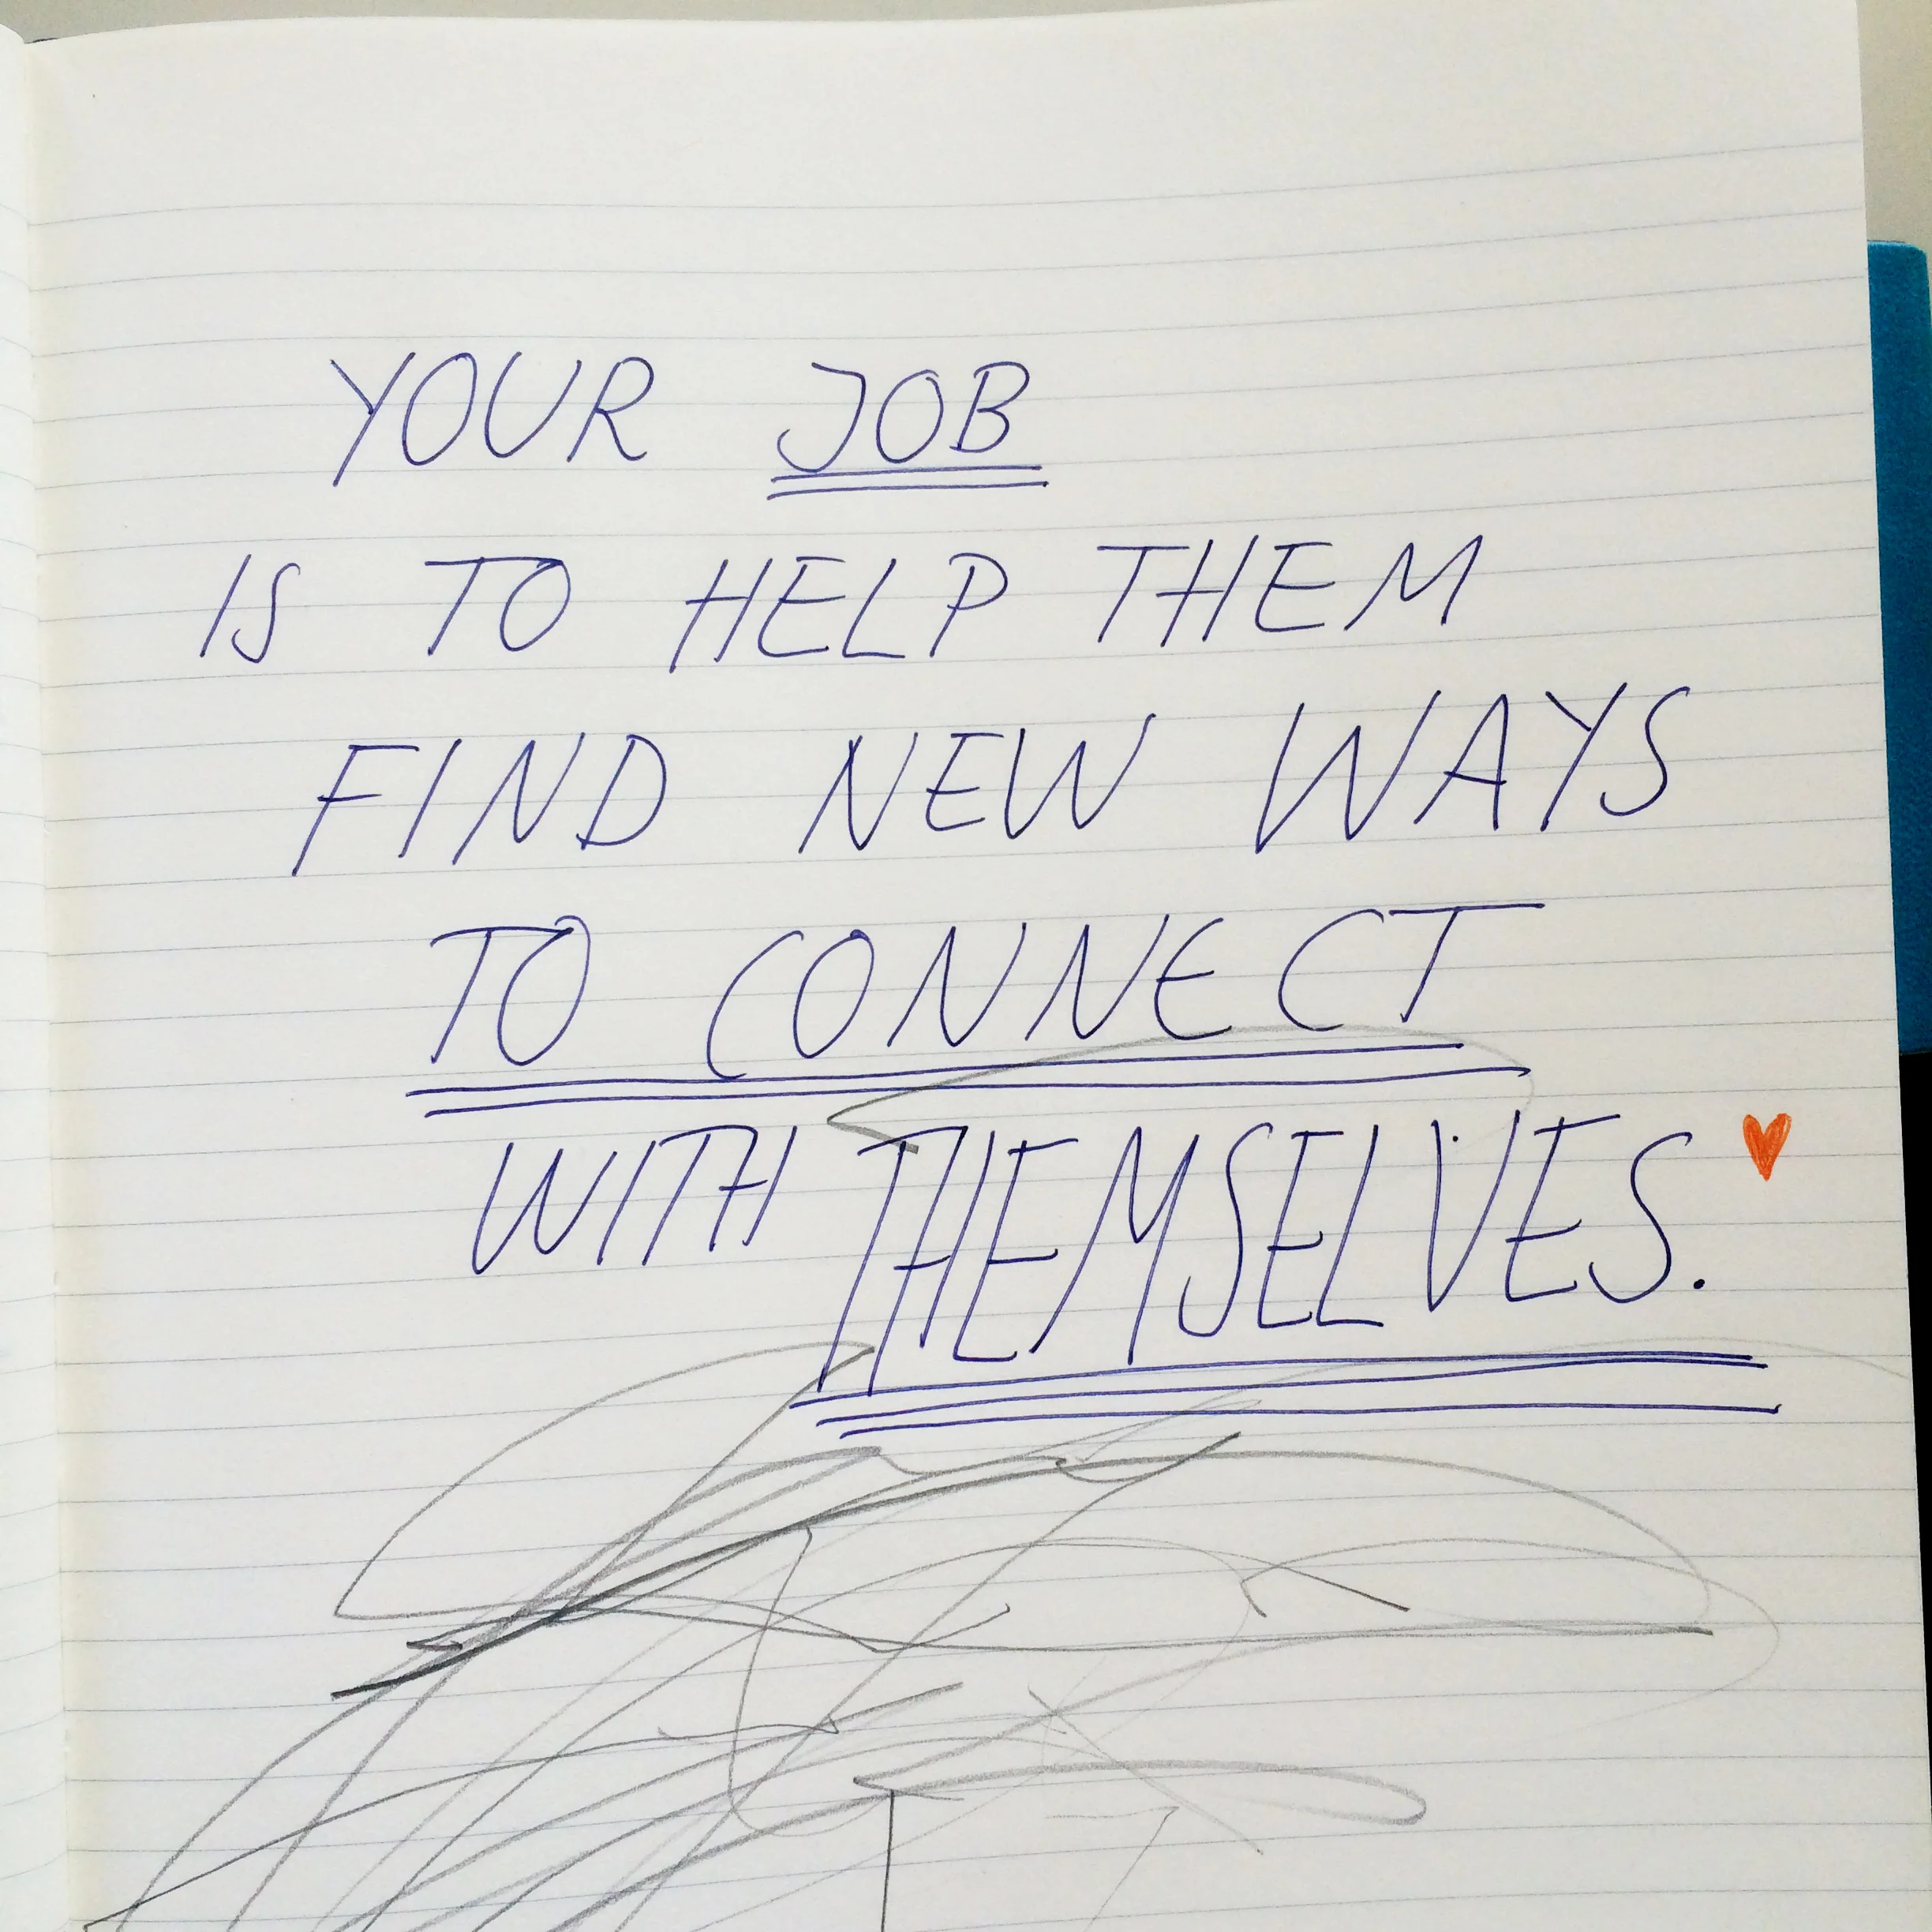 YOUR JOB
IS TO HELP THEM
FIND NEW WAYS
TO CONNECT
WITH THEMSELVES.